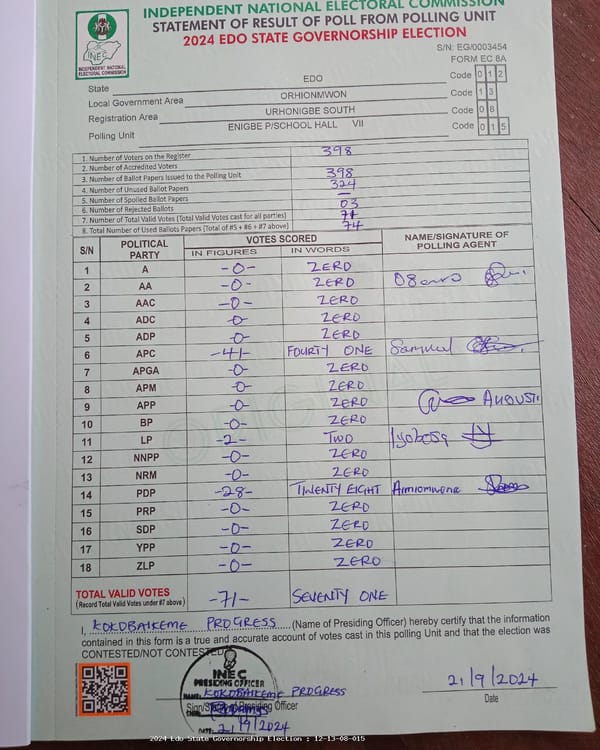 INDEPENDENT NATIONAL ELECTORAL COMMISSION
STATEMENT OF RESULT OF POLL FROM POLLING UNIT
2024 EDO STATE GOVERNORSHIP ELECTION
INEC
INDEPENDENT NATIONAL ELECTORAL COMMISSION
S/N: EG/0003454
FORM EC 8A
State EDO Code 0 1 2
Local Government Area ORHIONMWON Code 1 3
Registration Area URHONIGBE SOUTH Code 0 8
Polling Unit ENIGBE P/SCHOOL HALL VII Code 0 1 5
1. Number of Voters on the Register 398
2. Number of Accredited Voters
3. Number of Ballot Papers Issued to the Polling Unit 398
4. Number of Unused Ballot Papers 324
5. Number of Spoiled Ballot Papers —
6. Number of Rejected Ballots 03
7. Number of Total Valid Votes (Total Valid Votes cast for all parties) 71
8. Total Number of Used Ballots Papers (Total of #5 + #6 + #7 above) 74
S/N POLITICAL PARTY VOTES SCORED NAME/SIGNATURE OF POLLING AGENT
IN FIGURES IN WORDS
1 A -0- ZERO
2 AA -0- ZERO
3 AAC -0- ZERO
4 ADC -0- ZERO
5 ADP -0- ZERO
6 APC -41- FOURTY ONE Samuel
7 APGA -0- ZERO
8 APM -0- ZERO
9 APP -0- ZERO AUGUSTI
10 BP -0- ZERO
11 LP -2- TWO Iyobosa
12 NNPP -0- ZERO
13 NRM -0- ZERO
14 PDP -28- TWENTY EIGHT
15 PRP -0- ZERO
16 SDP -0- ZERO
17 YPP -0- ZERO
18 ZLP -0- ZERO
TOTAL VALID VOTES -71- SEVENTY ONE
(Record Total Valid Votes under #7 above)
I, KOKOBAIKEME PROGRESS (Name of Presiding Officer) hereby certify that the information
contained in this form is a true and accurate account of votes cast in this polling Unit and that the election was
CONTESTED/NOT CONTESTED
INEC
PRESIDING OFFICER
NAME: KOKOBAIKEME PROGRESS
Presiding Officer
DATE: 21/9/2024
21/9/2024
Date
2024 Edo State Governorship Election : 12-13-08-015